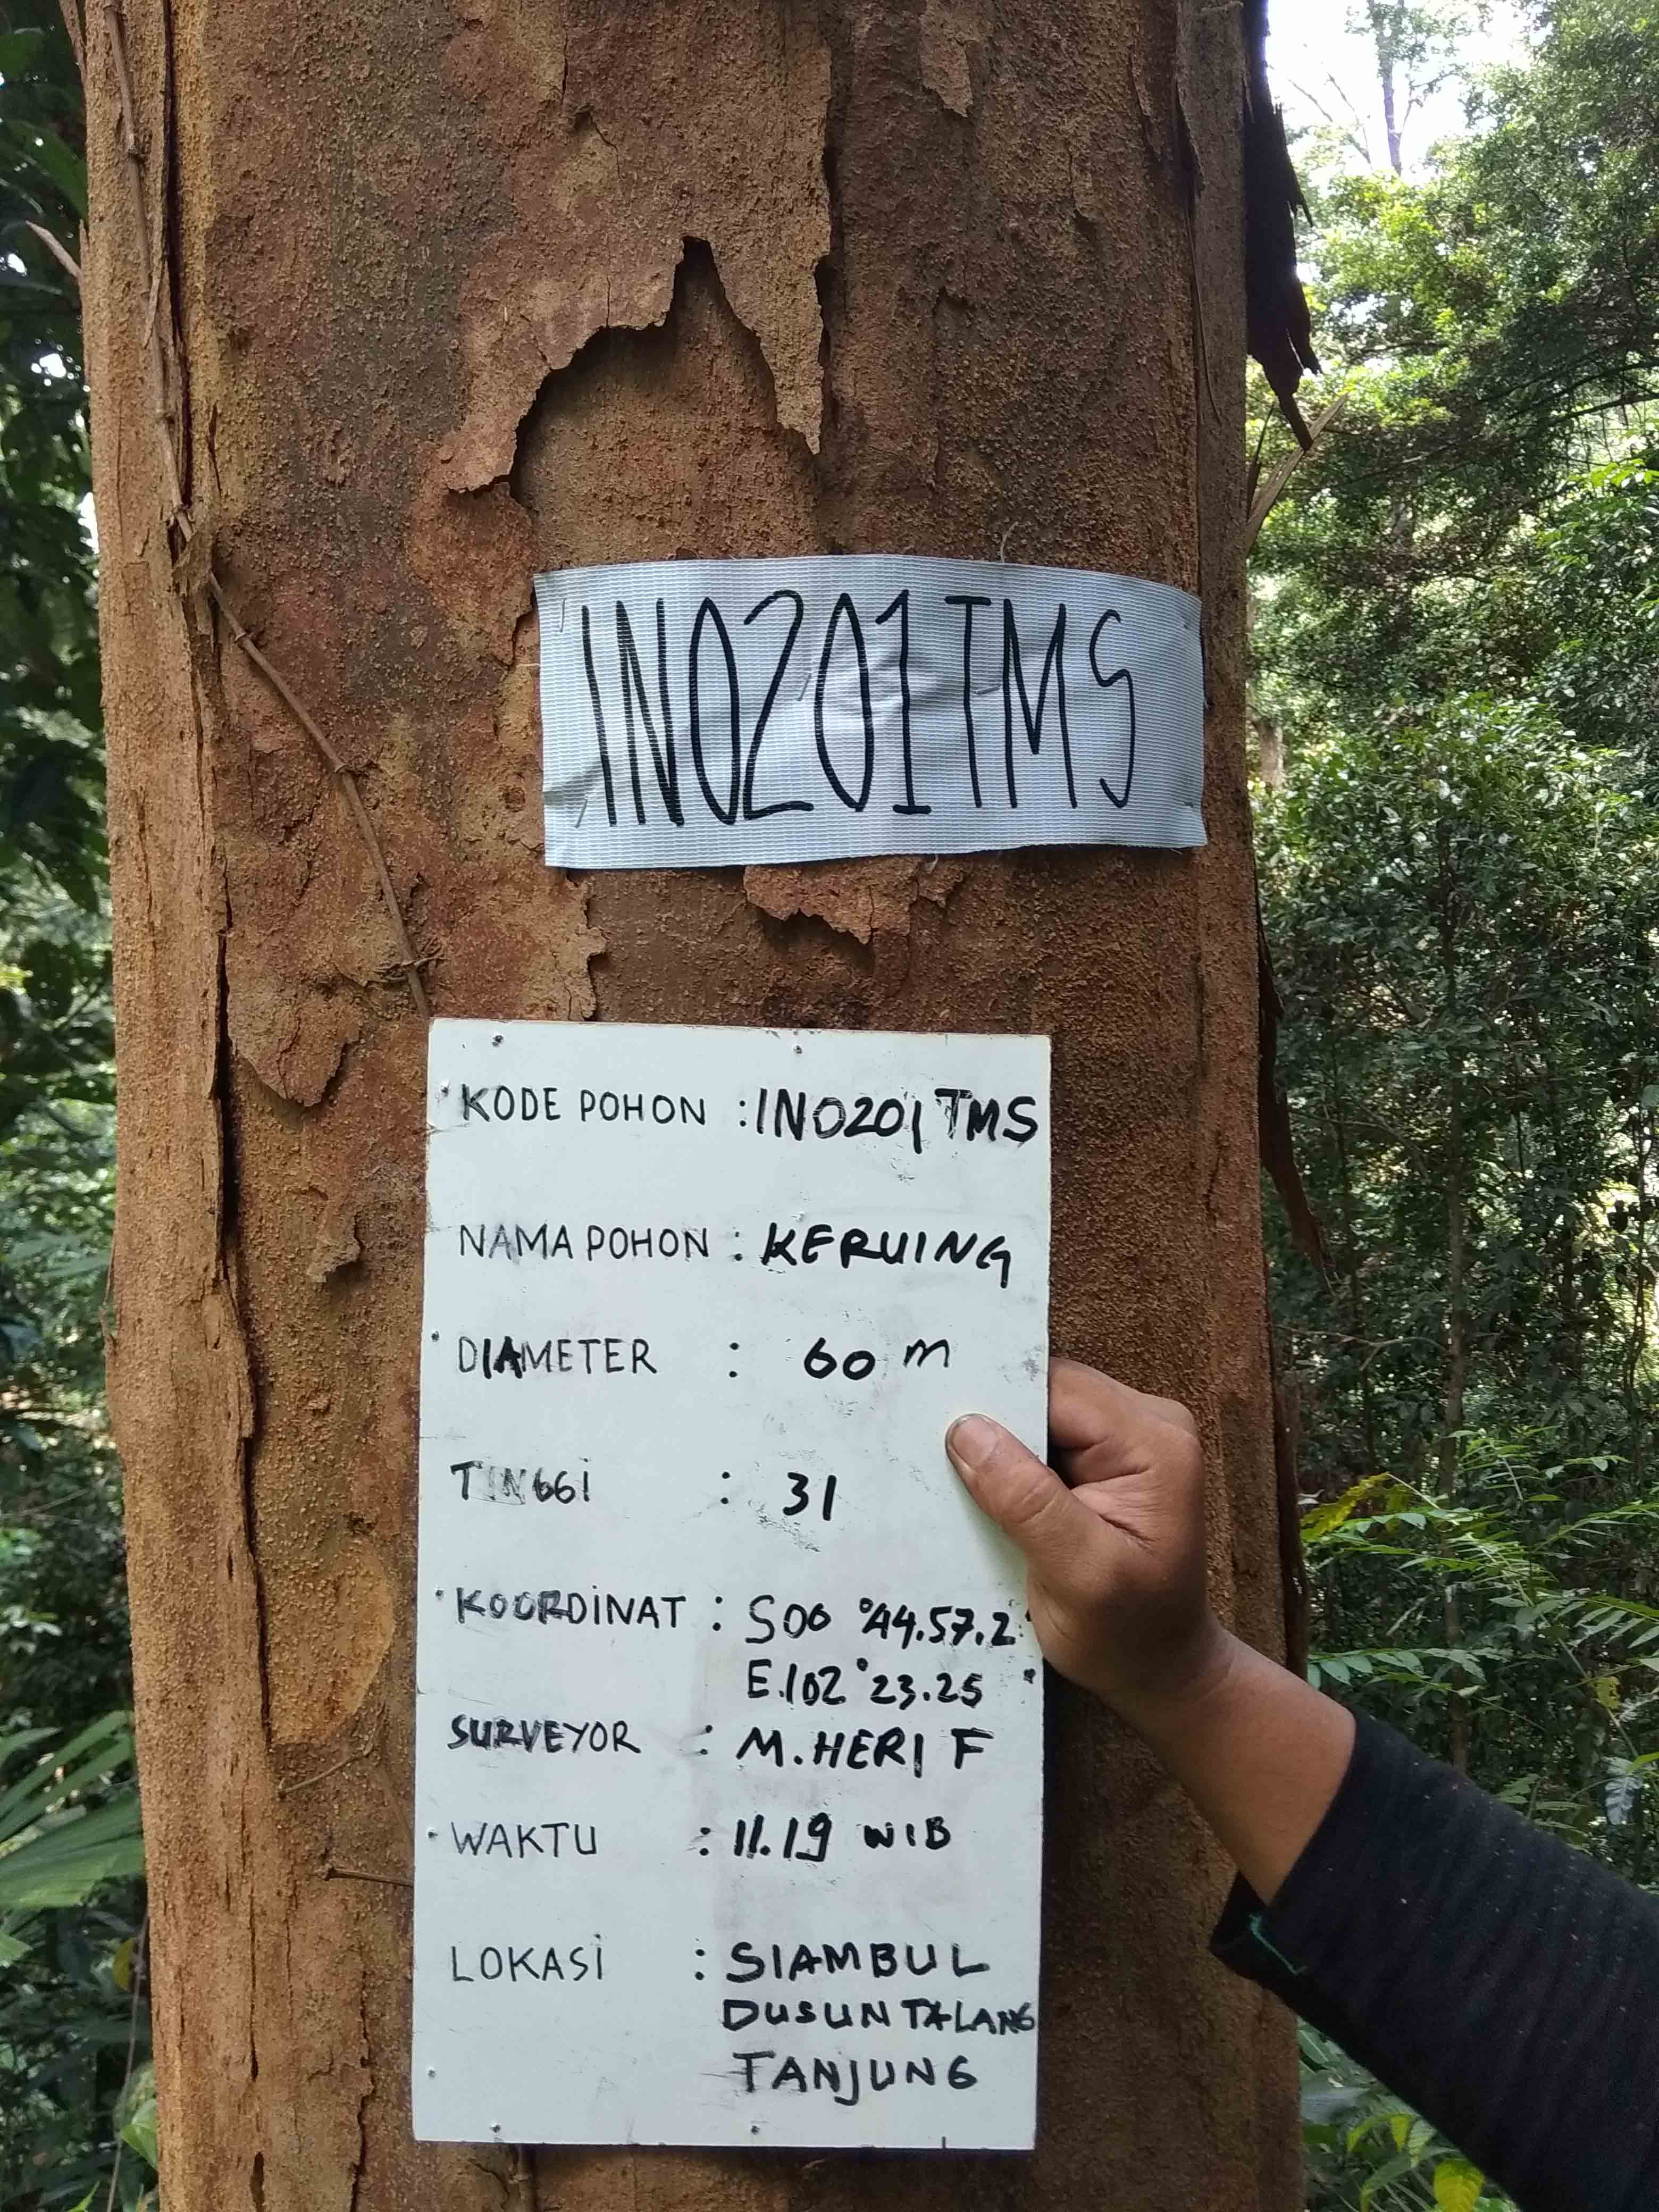 IN0201TMS
KODE POHON : IN0201TMS
NAMA POHON : KERUING
DIAMETER : 60 m
TINGGi : 31
KOORDiNAT : S00 °44.57.2
E.102°23.25
SURVEYOR : M.HERI F
WAKTU : 11.19 WIB
LOKASi : SIAMBUL
DUSUN TALANG
TANJUNG